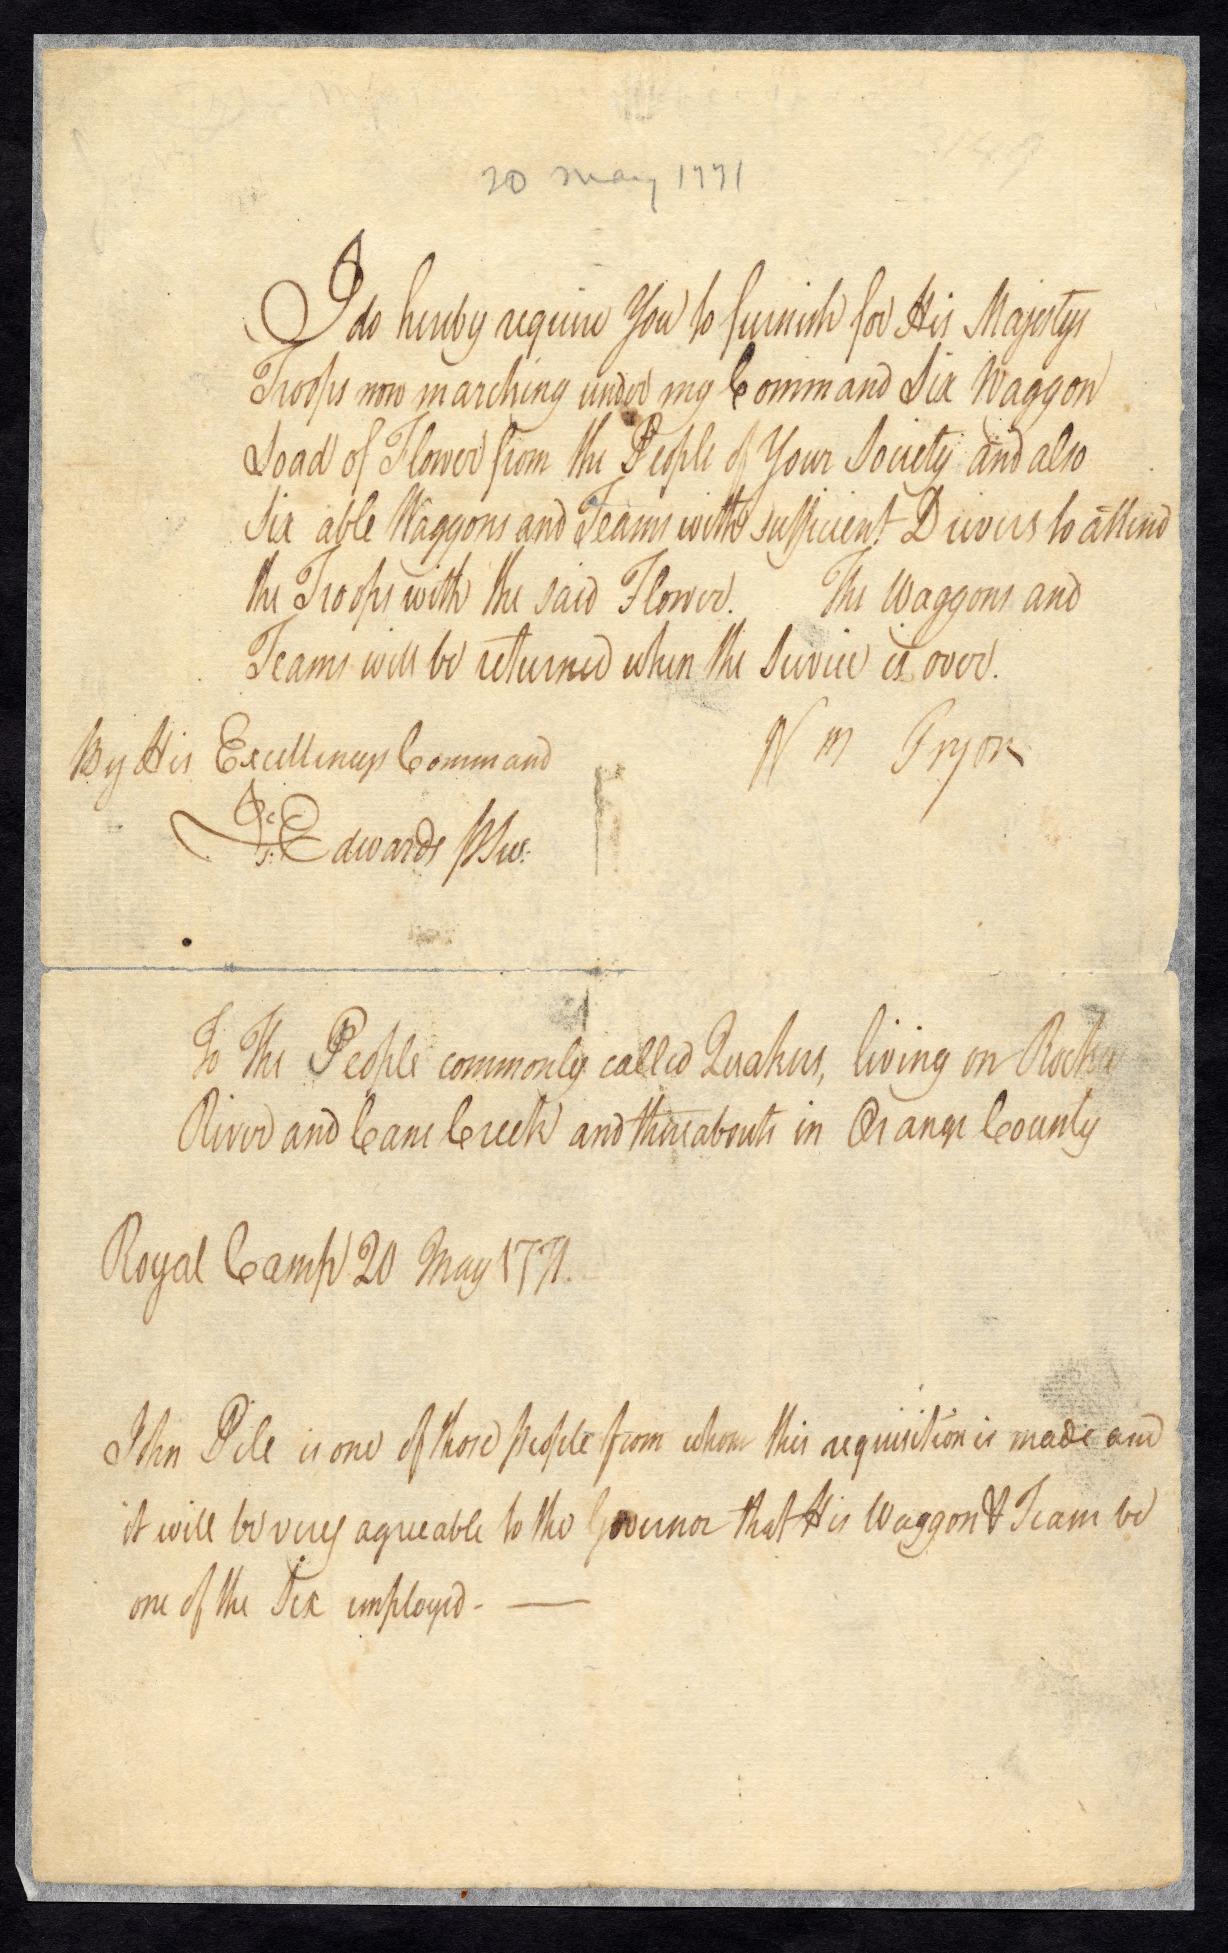 20 May 1771
I do hereby require You to furnish for His Majestys
Troops now marching under my Command Six Waggon
Load of Flower from the People of Your Society and also
Six able Waggons and Teams with sufficient Drivers to attend
the Troops with the said Flower. The Waggons and
Teams will be returned when the Service is over.
Wm Tryon
By His Excellencys Command
Is: Edwards PSec:
To The People commonly called Quakers, living on Rocky
River and Cane Creek and thereabouts in Orange County
Royal Camp 20 May 1771.
John Pile is one of those people from whom this requisition is made and
it will be very agreeable to the Governor that His Waggon & Team be
one of the Six employed - —